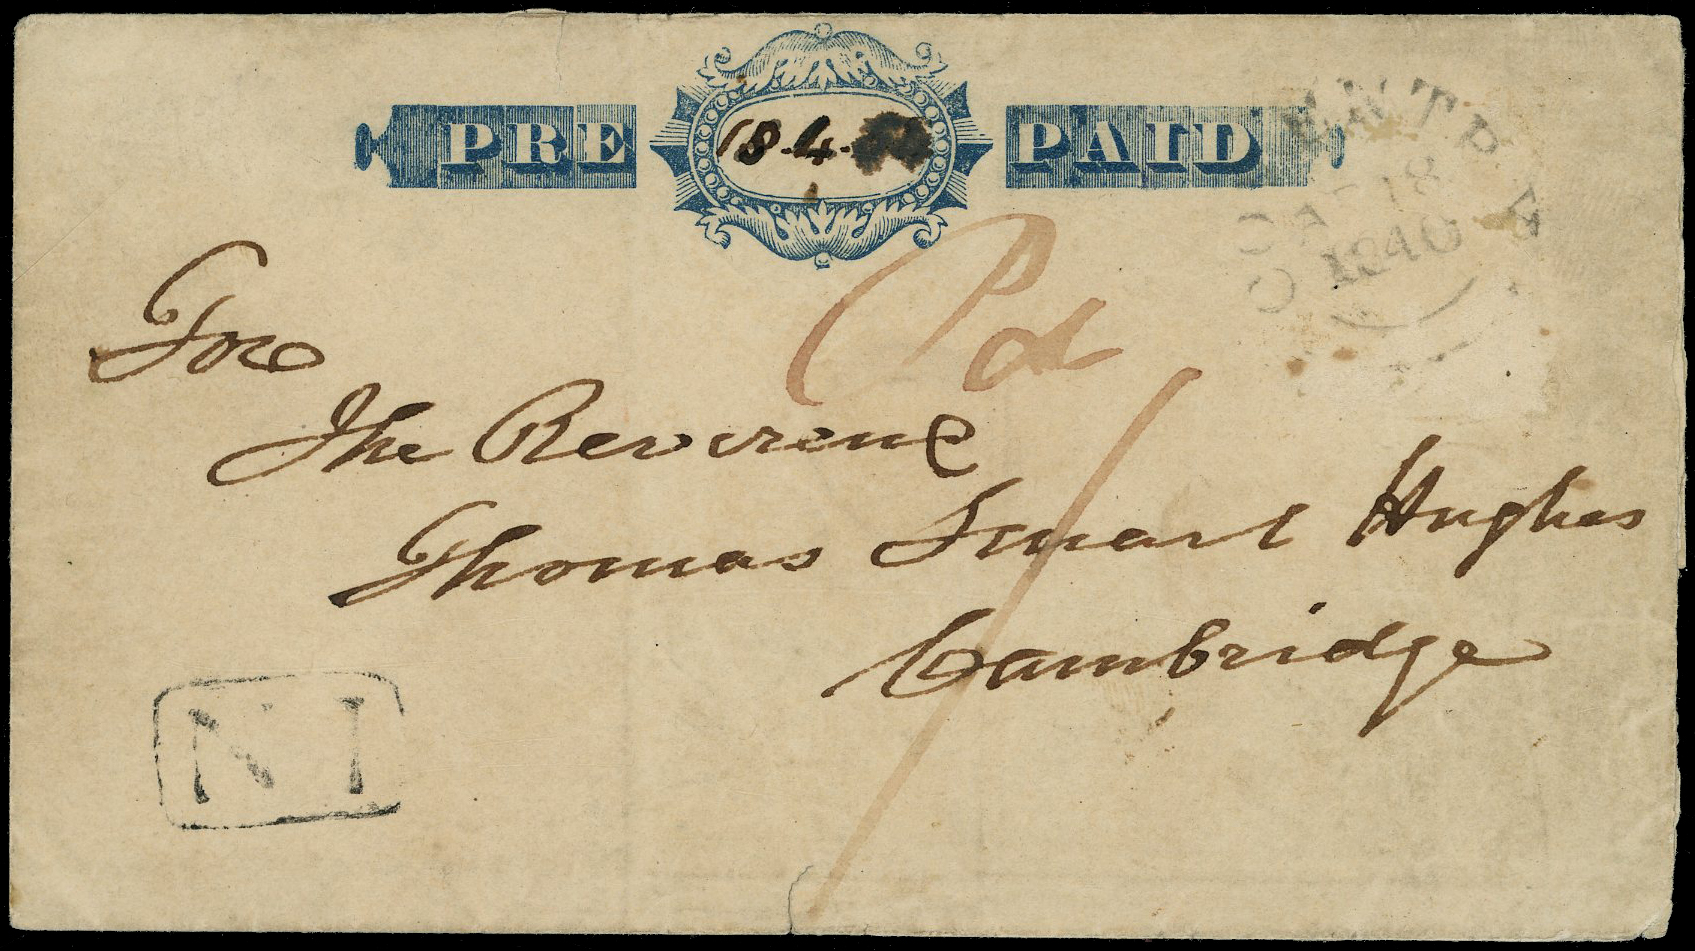 PRE PAID
18.4.
AP 18
1840
Pd
1
For
The Reverend
Thomas Smart Hughes
Cambridge
N 1